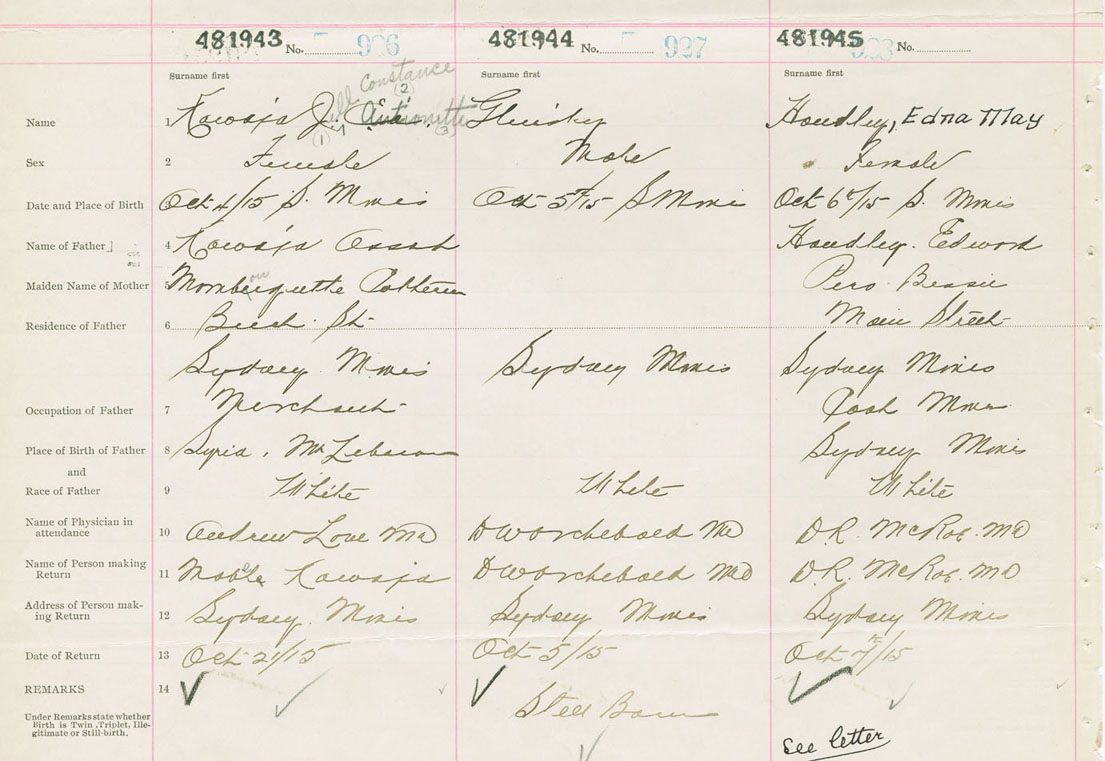 481943 No. 926 481944 No. 927 481945 923 No.
Surname first Surname first Surname first
Constance
(2)
Name 1 Kawaja Jill Antionette Glinsky Handley, Edna May
(1) (3)
Sex 2 Female Male Female
Date and Place of Birth 3 Oct 4/15 S. Mines Oct 5th/15 S Mines Oct 6th/15 S. Mines
Name of Father 4 Kawaja Assah Handley. Edward
Maiden Name of Mother 5 Pero Bessie
Residence of Father 6 Beech St Main Street
Sydney Mines Sydney Mines Sydney Mines
Occupation of Father 7 Merchant Coal Miner
Place of Birth of Father 8 Syria, Mt Lebanon Sydney Mines
and
Race of Father 9 White White White
Name of Physician in
attendance 10 Andrew Love MD D W Archibald MD D.R. McRae. MD
Name of Person making
Return 11 Mable Kawaja D W Archibald MD D.R. McRae. MD
Address of Person mak-
ing Return 12 Sydney Mines Sydney Mines Sydney Mines
Date of Return 13 Oct 21/15 Oct 5/15 Oct 7th/15
REMARKS 14
Under Remarks state whether
Birth is Twin, Triplet, Ille-
gitimate or Still-birth.
Still Born
See letter